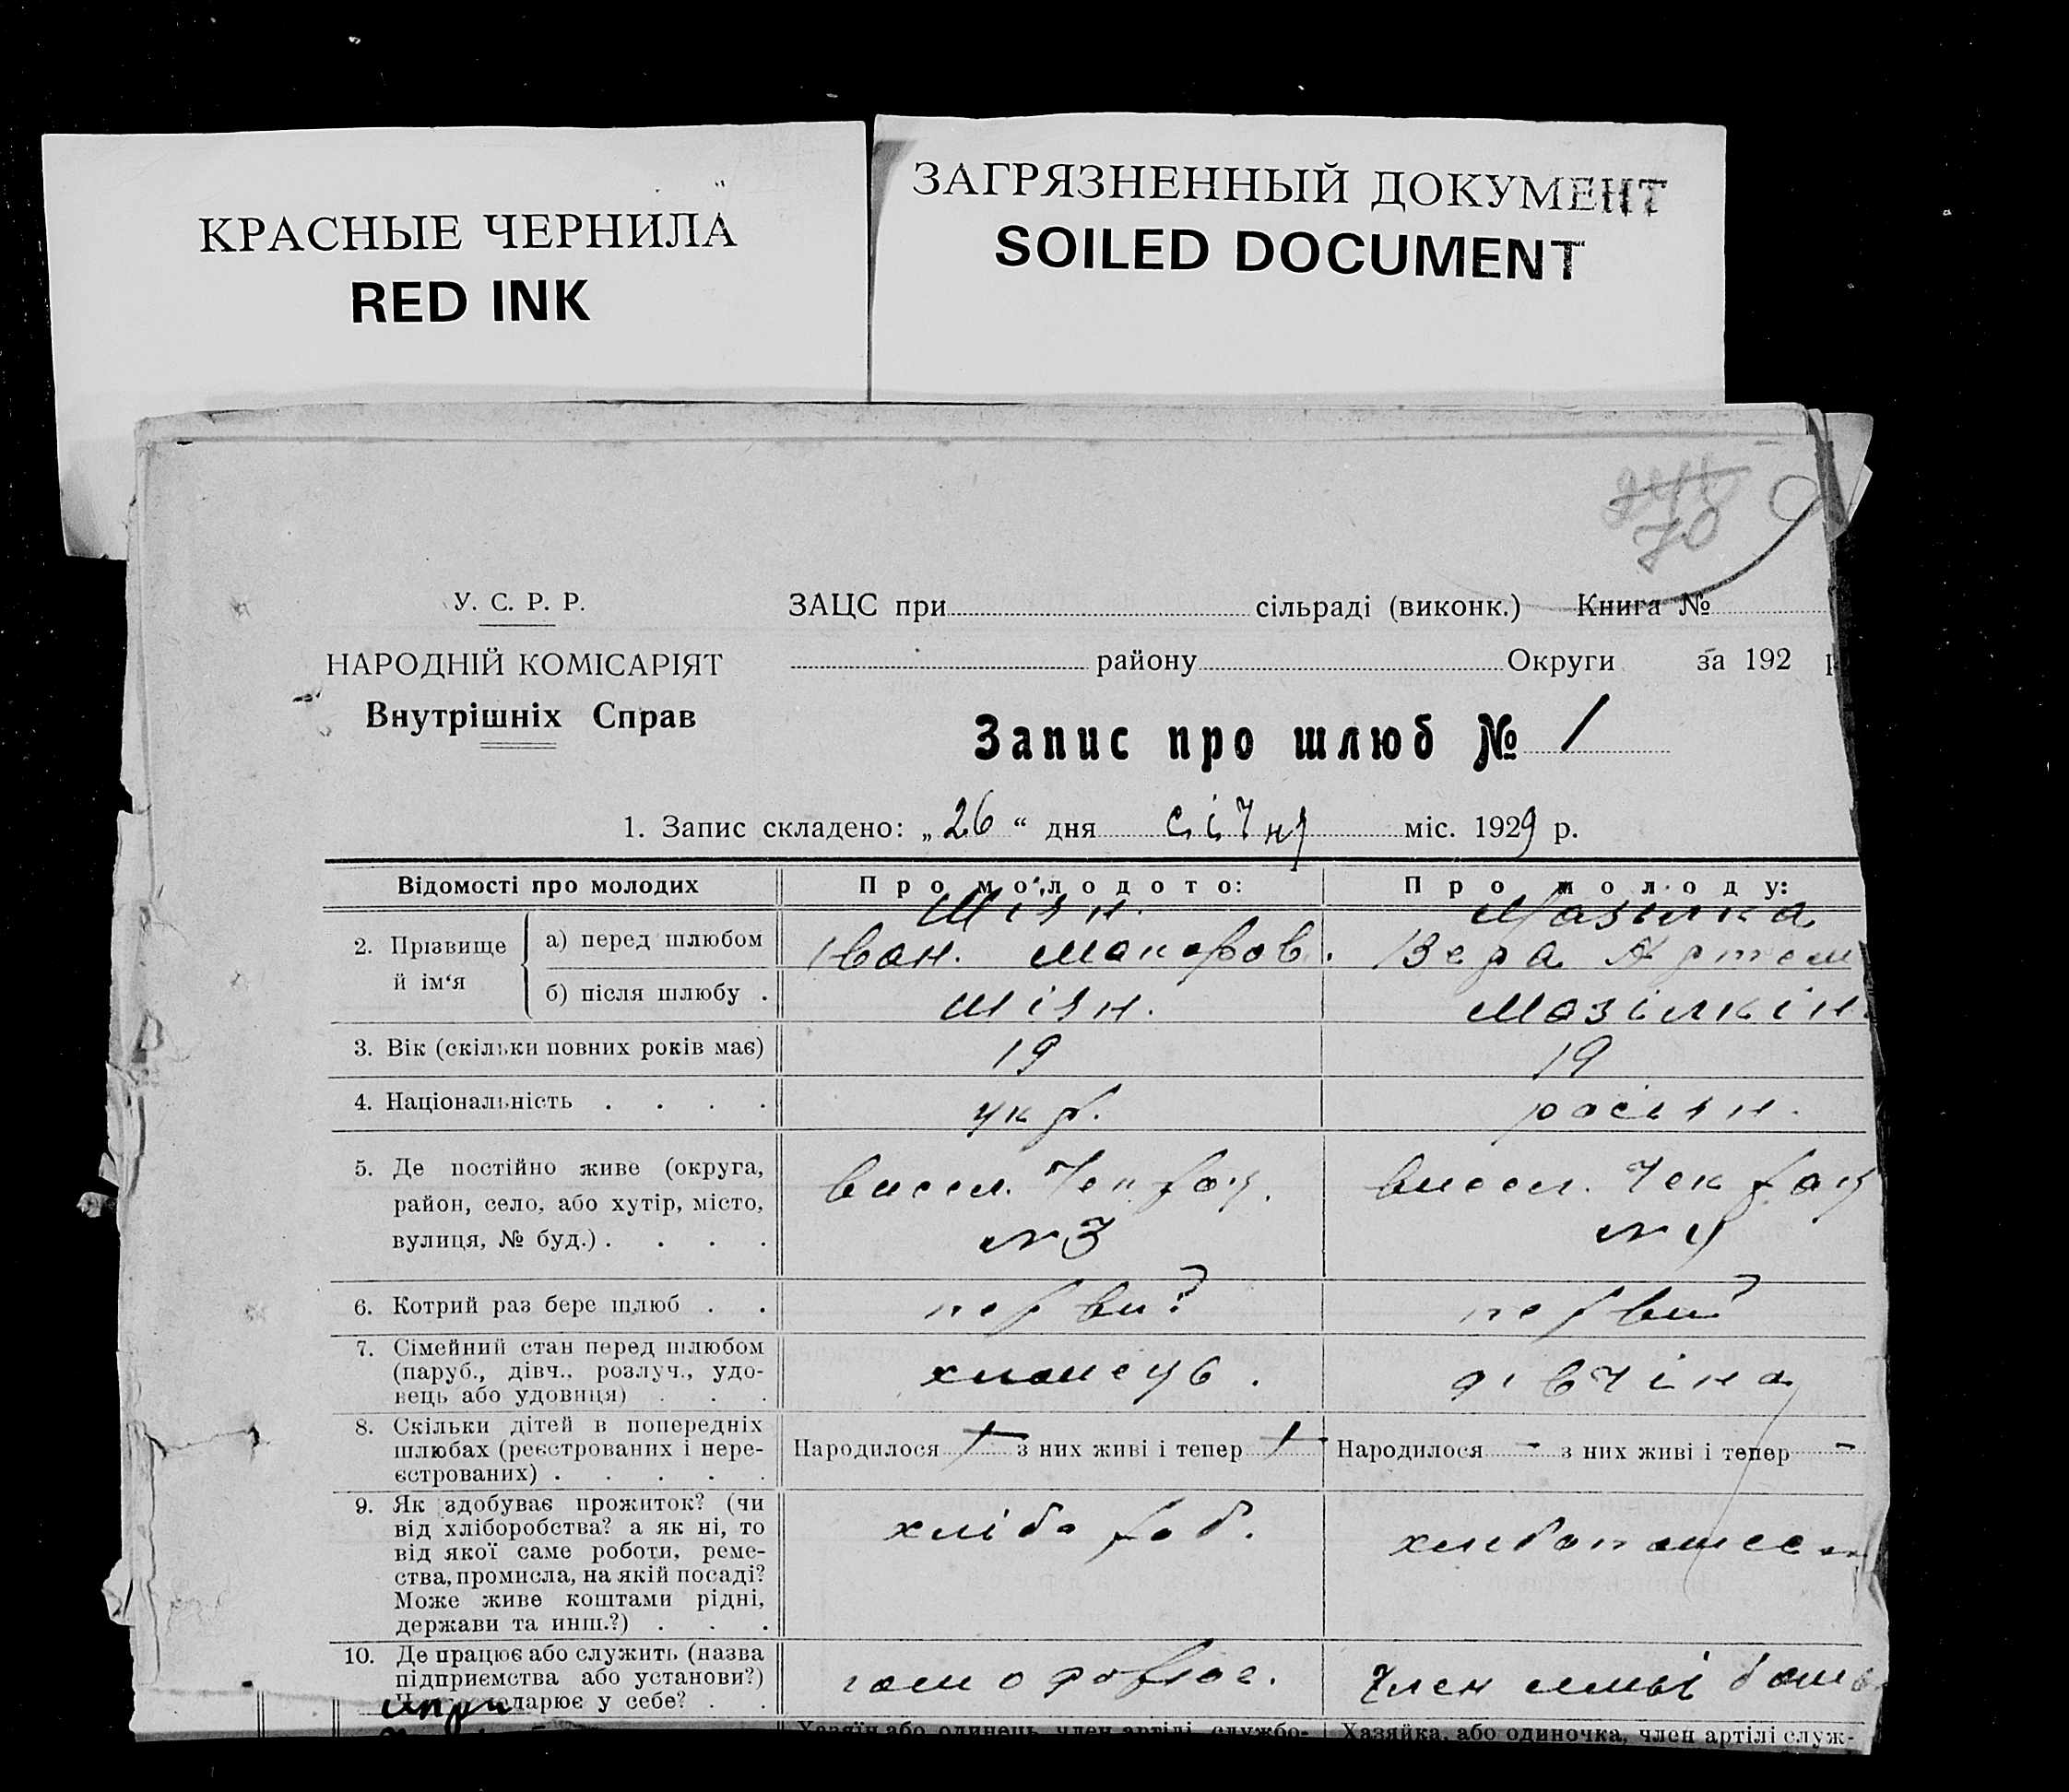 КРАСНЫЕ ЧЕРНИЛА
RED INK
ЗАГРЯЗНЕННЫЙ ДОКУМЕНТ
SOILED DOCUMENT
70
У. С. Р. Р.
НАРОДНІЙ КОМІСАРІЯТ
Внутрішніх Справ
ЗАЦС при сільраді (виконк.) Книга №
району Округи за 192 р
Запис про шлюб № 1
1. Запис складено: „26“ дня січня міс. 1929 р.
Відомості про молодих
Про молодого:
Про молоду:
2. Прізвище й ім‘я
а) перед шлюбом
Шіян.
Іван. Макаров.
Мазилка
Вера Артем
б) після шлюбу .
Шіян.
Мазілкін
3. Вік (скільки повних років має)
19
19
4. Національність . . . .
укр.
росіян.
5. Де постійно живе (округа,
район, село, або хутір, місто,
вулиця, № буд.) . . . .
висел.
№ 3
висел.
6. Котрий раз бере шлюб . .
первий
первий
7. Сімейний стан перед шлюбом
(паруб., дівч., розлуч., удо-
вець або удовиця) . . .
хлопець.
дівчіна
8. Скільки дітей в попередніх
шлюбах (реєстрованих і нере-
єстрованих) . . . . .
Народилося з них живі і тепер
Народилося - з них живі і тепер -
9. Як здобуває прожиток? (чи
від хліборобства? а як ні, то
від якої саме роботи, реме-
ства, промисла, на якій посаді?
Може живе коштами рідні,
держави та инш.?) . . .
хлібороб.
10. Де працює або служить (назва
підприємства або установи?)
у себе? . .
Член
Хазяїн або одинець, член артілі, службо-
Хазяйка, або одиночка, член артілі служ-